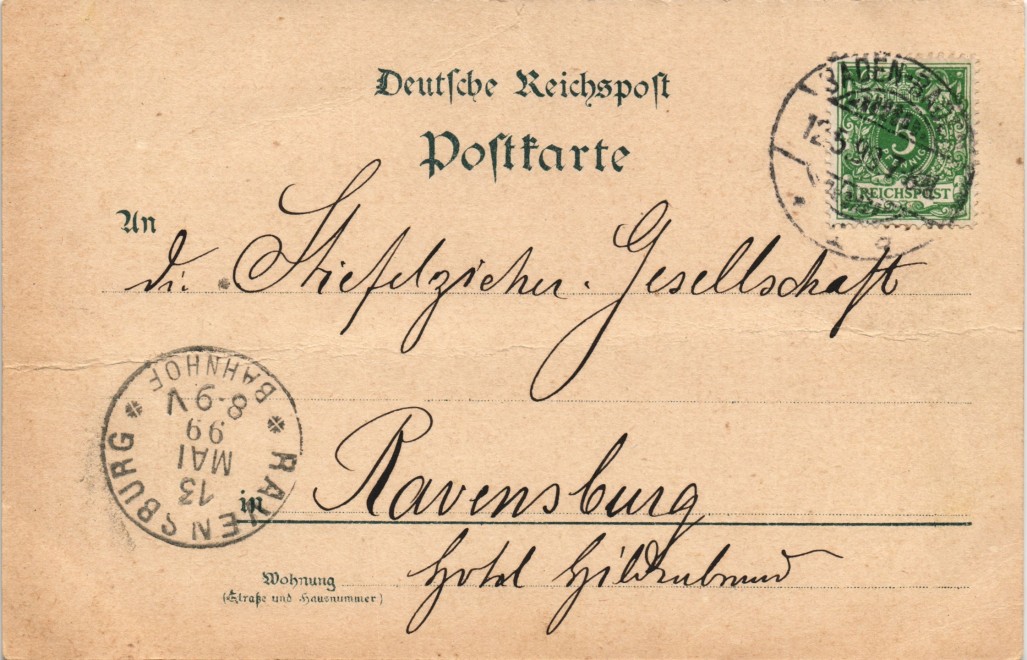 Deutsche Reichspost
Postkarte
BADEN-BADEN
12.5.99.7-8N.
5
PFENNIG
REICHSPOST
An
die Stiefelzieher-Gesellschaft
RAVENSBURG
13
MAI
99
8-9V
BAHNHOF
in Ravensburg
Wohnung
(Straße und Hausnummer)
Hotel Hildenbrand